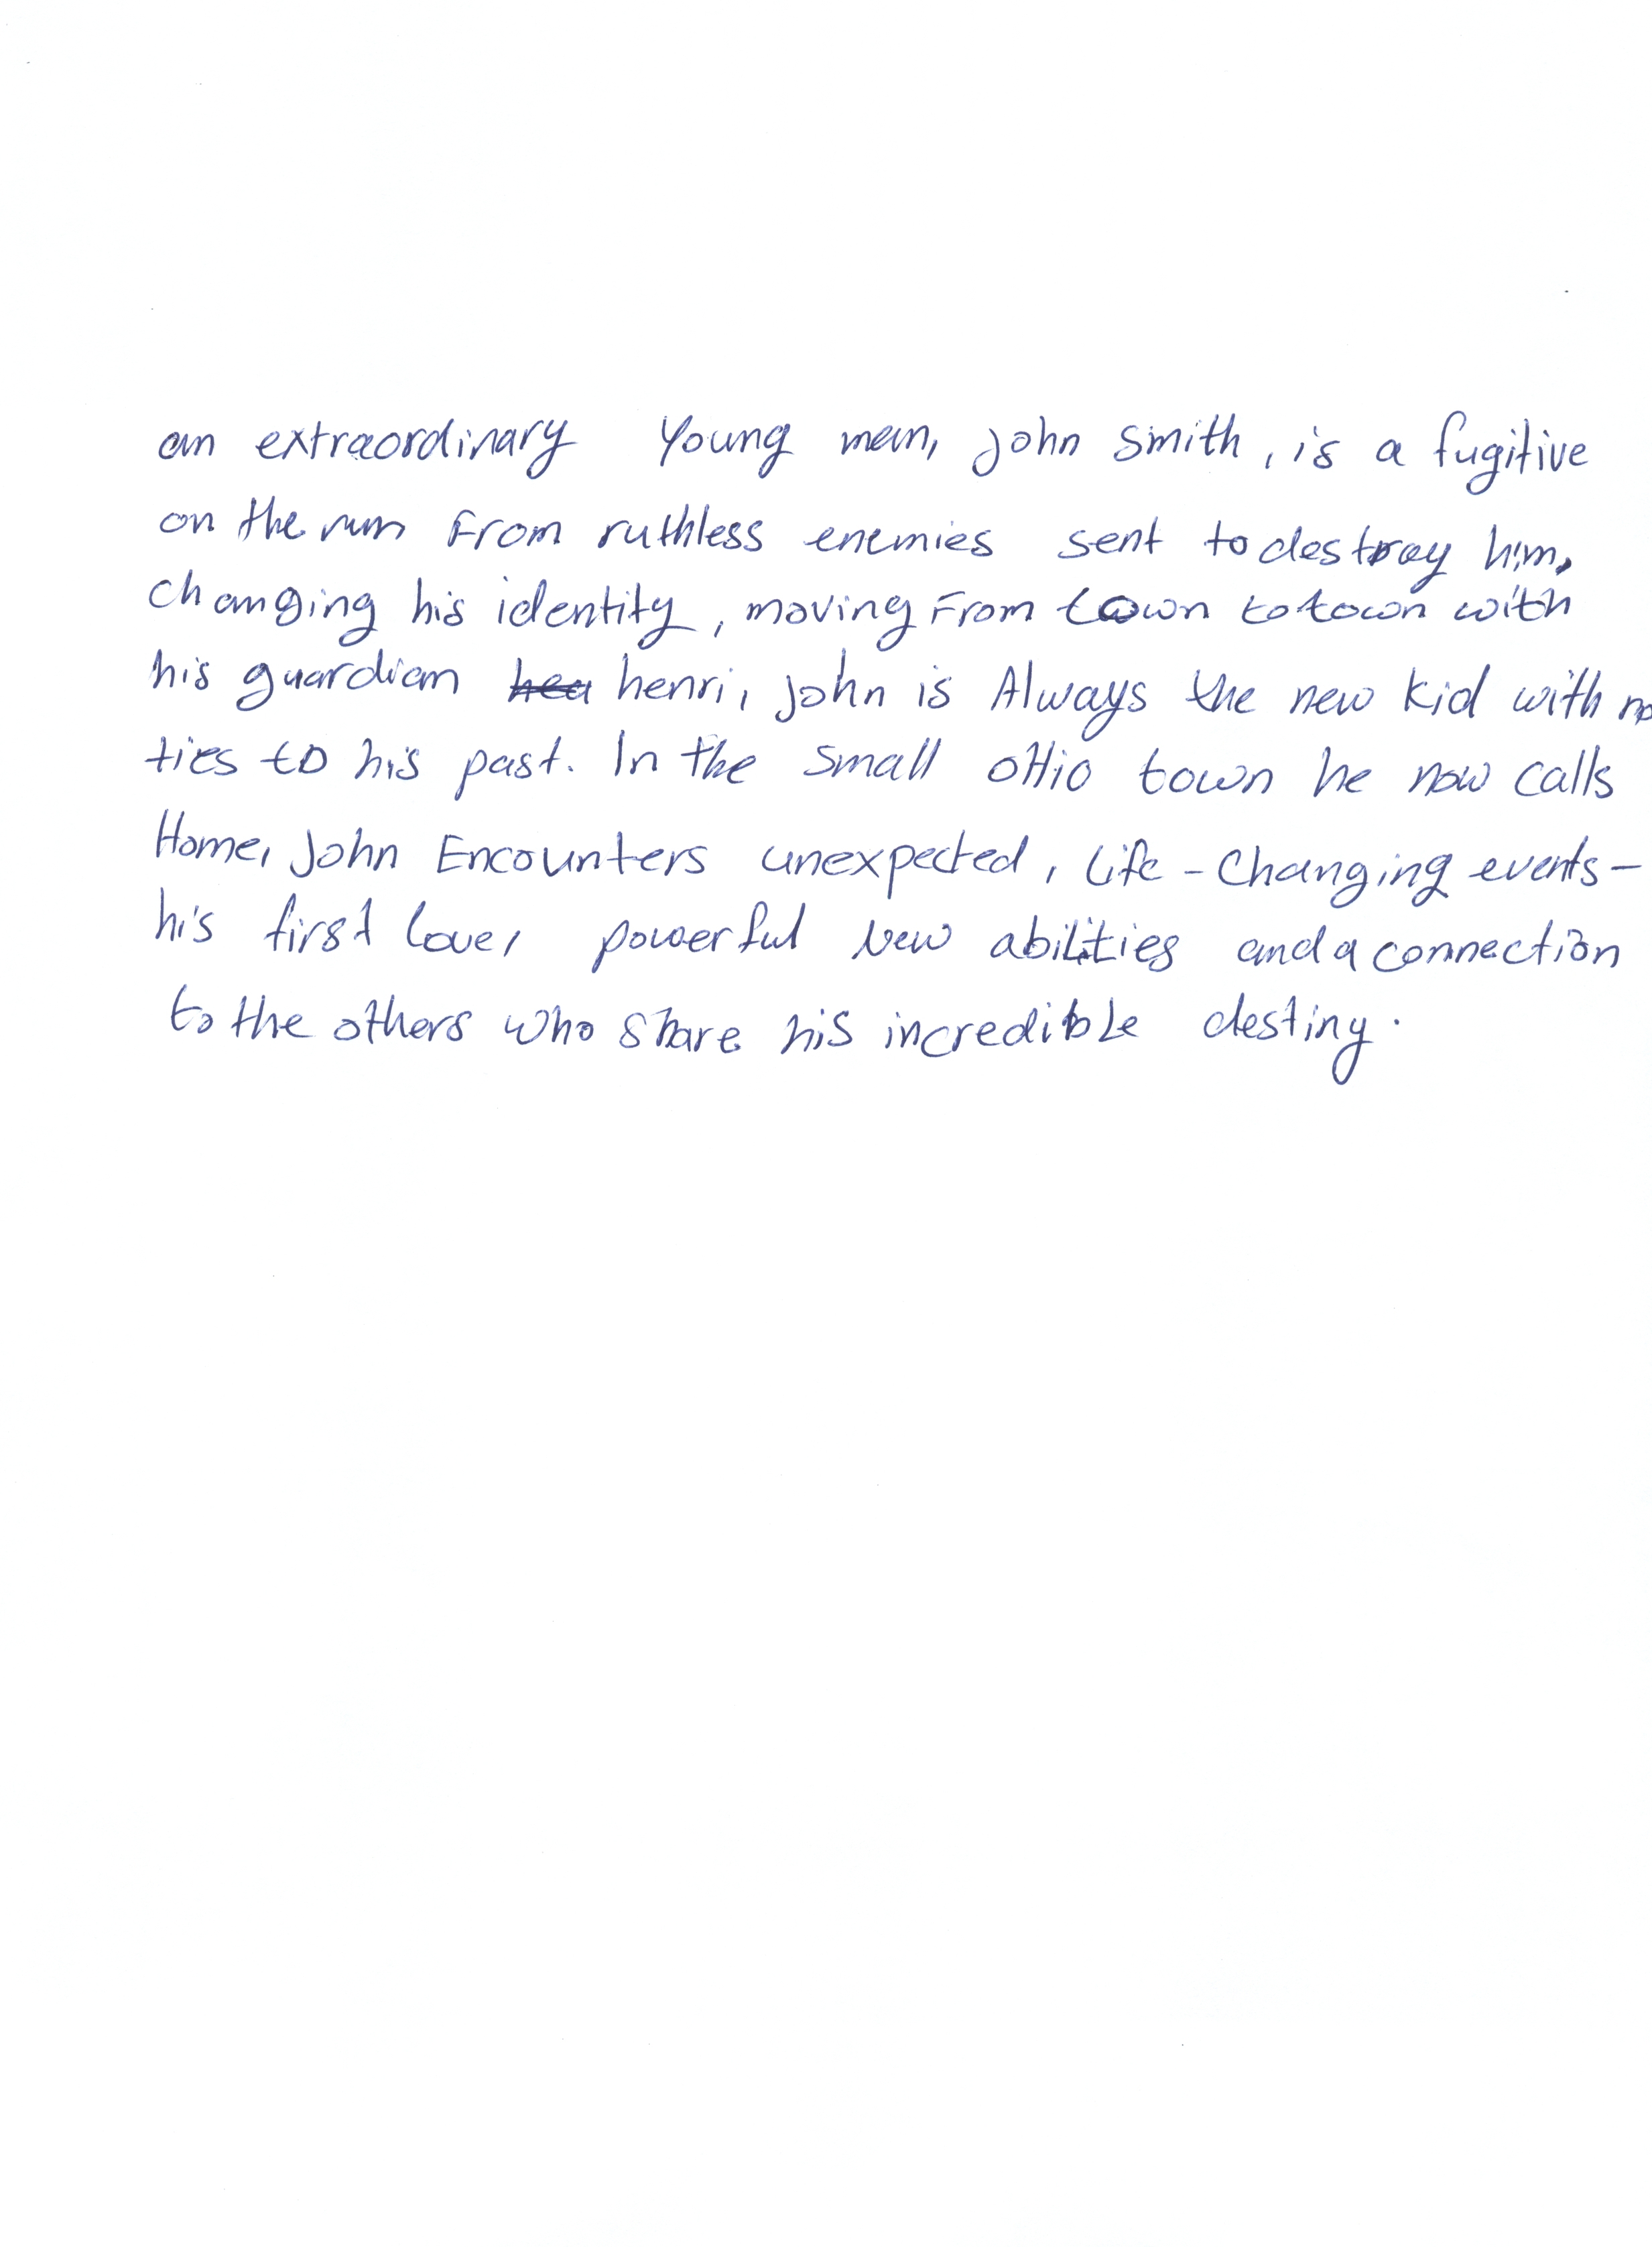 an extraordinary Young man, john smith, is a fugitive
on the run From ruthless enemies sent to destroy him.
changing his identity, moving From town to town with
his guardian hea henri, john is Always the new kid with no
ties to his past. In the small oHio town he now calls
Home, John Encounters unexpected, life-changing events-
his first love, powerful new abilities and a connection
to the others who share his incredible destiny.